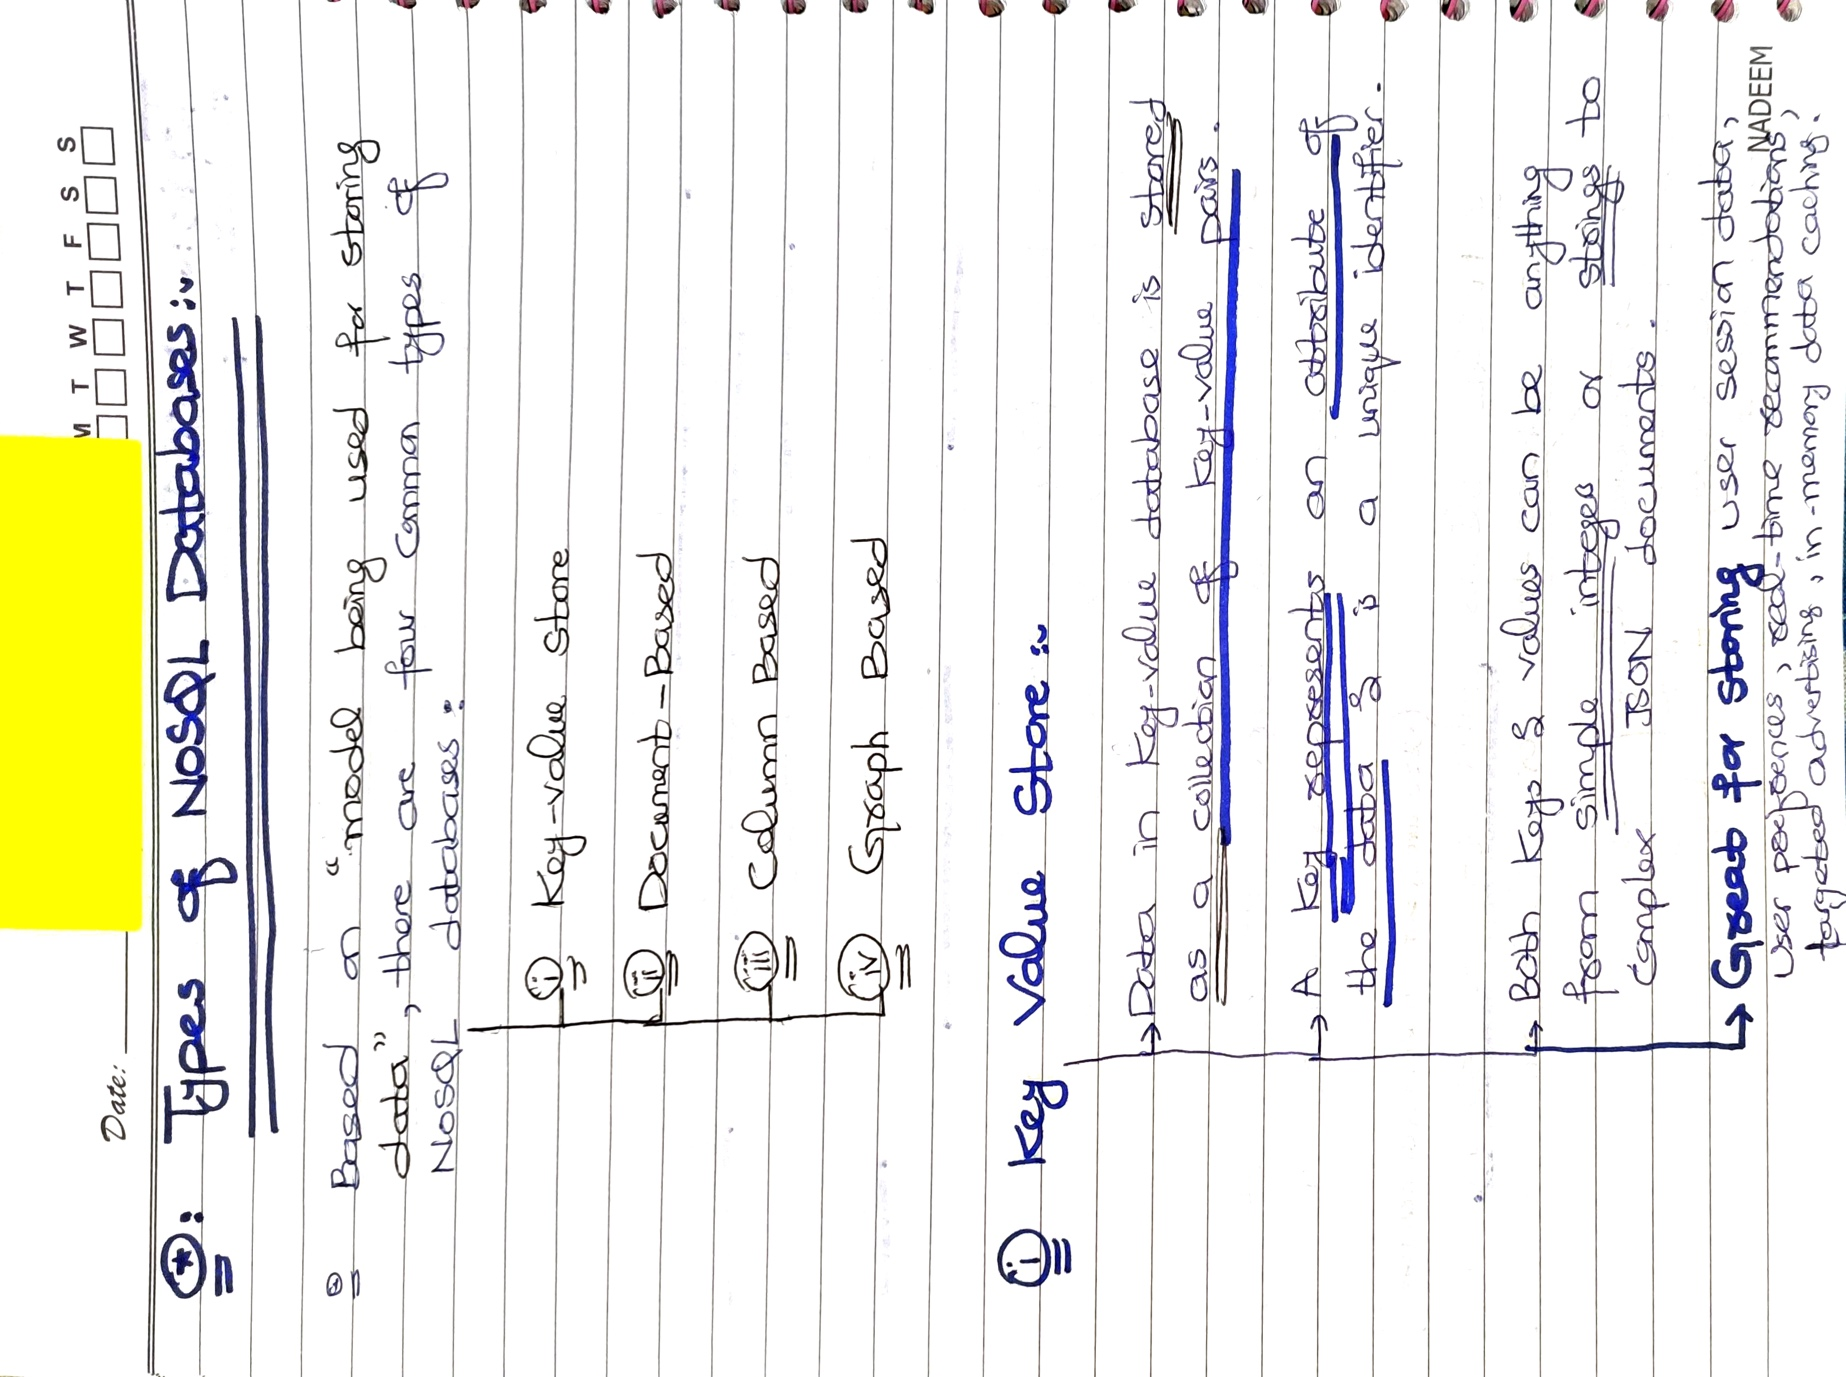 M T W T F S S
Date:
*: Types of NoSQL Databases:~
Based on "model being used for storing
data", there are four common types of
NoSQL databases:
i Key-value store
ii Document-Based
iii Column Based
iv Graph Based
i Key Value Store:~
→ Data in key-value database is stored
as a collection of key-value pairs.
→ A key represents an attribute of
the data & is a unique identifier.
→ Both keys & values can be anything
from simple integers or strings to
complex JSON documents.
→ Great for storing user session data,
user preferences, real-time recommendations,
targeted advertising, in-memory data caching.
NADEEM